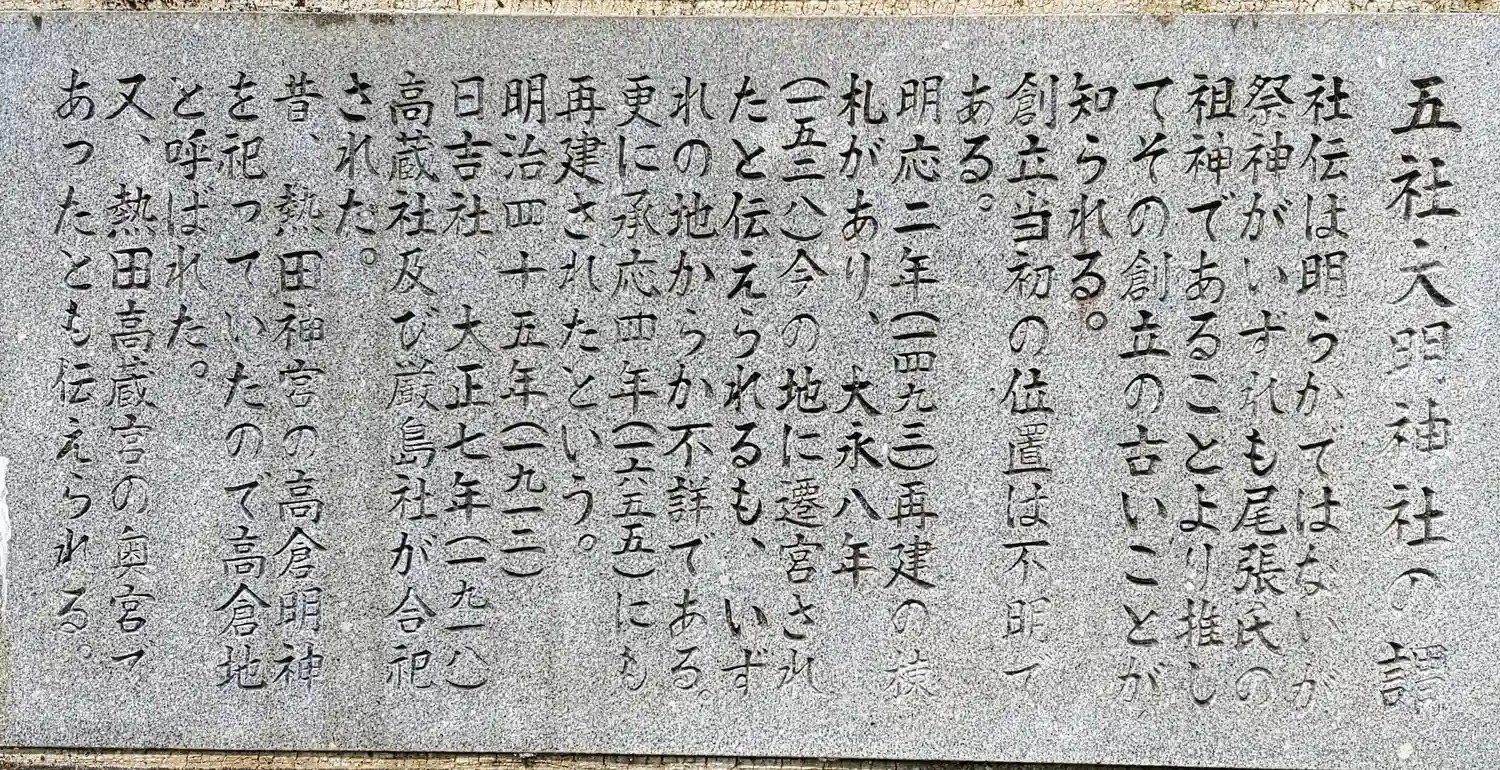 五社大明神社の譚
社伝は明らかではないが
祭神がいずれも尾張氏の
祖神であることより推し
てその創立の古いことが
知られる。
創立当初の位置は不明で
ある。
明応二年(一四九三)再建の棟
札があり、大永八年
(一五二八)今の地に遷宮され
たと伝えられるも、いず
れの地からか不詳である。
更に承応四年(一六五五)にも
再建されたという。
明治四十五年(一九一二)
日吉社、大正七年(一九一八)
高蔵社及び厳島社が合祀
された。
昔、熱田神宮の高倉明神
を祀っていたので高倉地
と呼ばれた。
又、熱田高蔵宮の奥宮で
あったとも伝えられる。